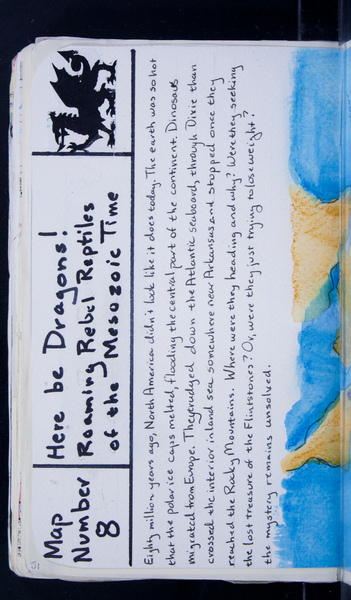 Map
Number
8
Here be Dragons!
Roaming Rebel Reptiles
of the Mesozoic Time
Eighty million years ago, North America didn't look like it does today. The earth was so hot
that the polar ice caps melted, flooding the central part of the continent. Dinosaurs
migrated from Europe. They trudged down the Atlantic seaboard, through Dixie than
crossed the interior inland sea somewhere near Arkansas and stopped once they
reached the Rocky Mountains. Where were they heading and why? Were they seeking
the lost treasure of the Flintstones? Or, were they just trying to lose weight?
the mystery remains unsolved.